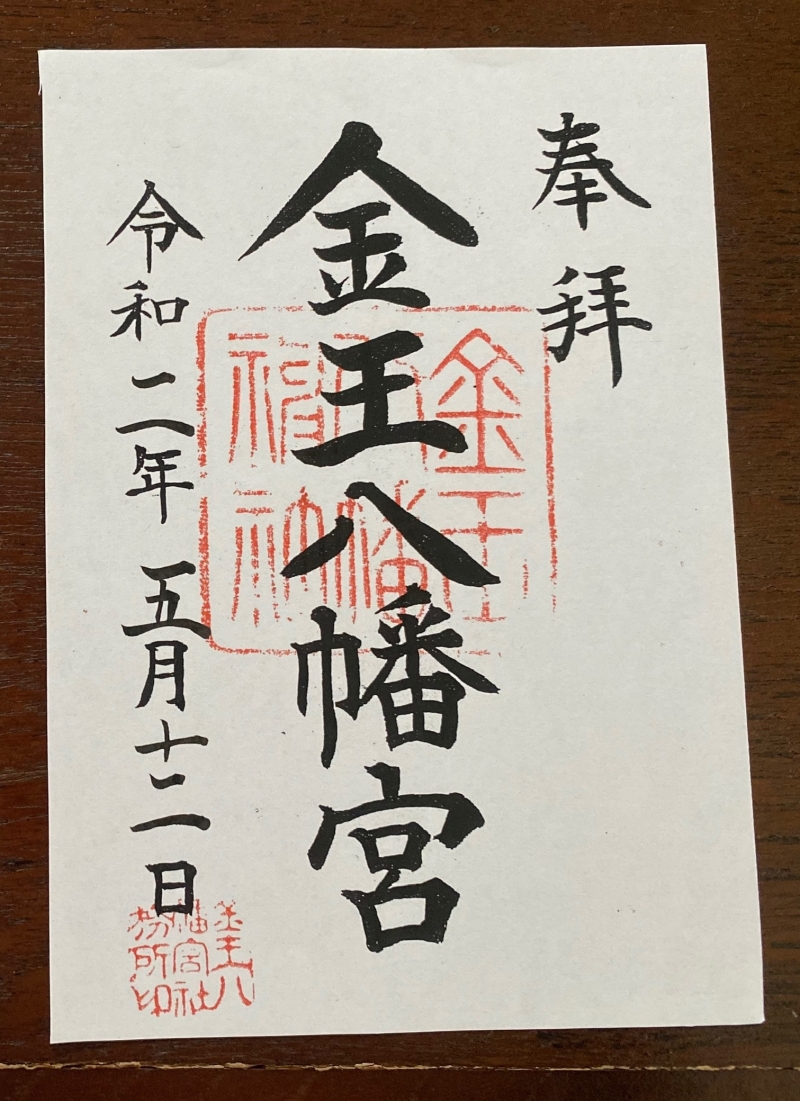 奉拝
金王八幡宮
令和二年五月十二日
金王
金王八
幡宮社
務所印